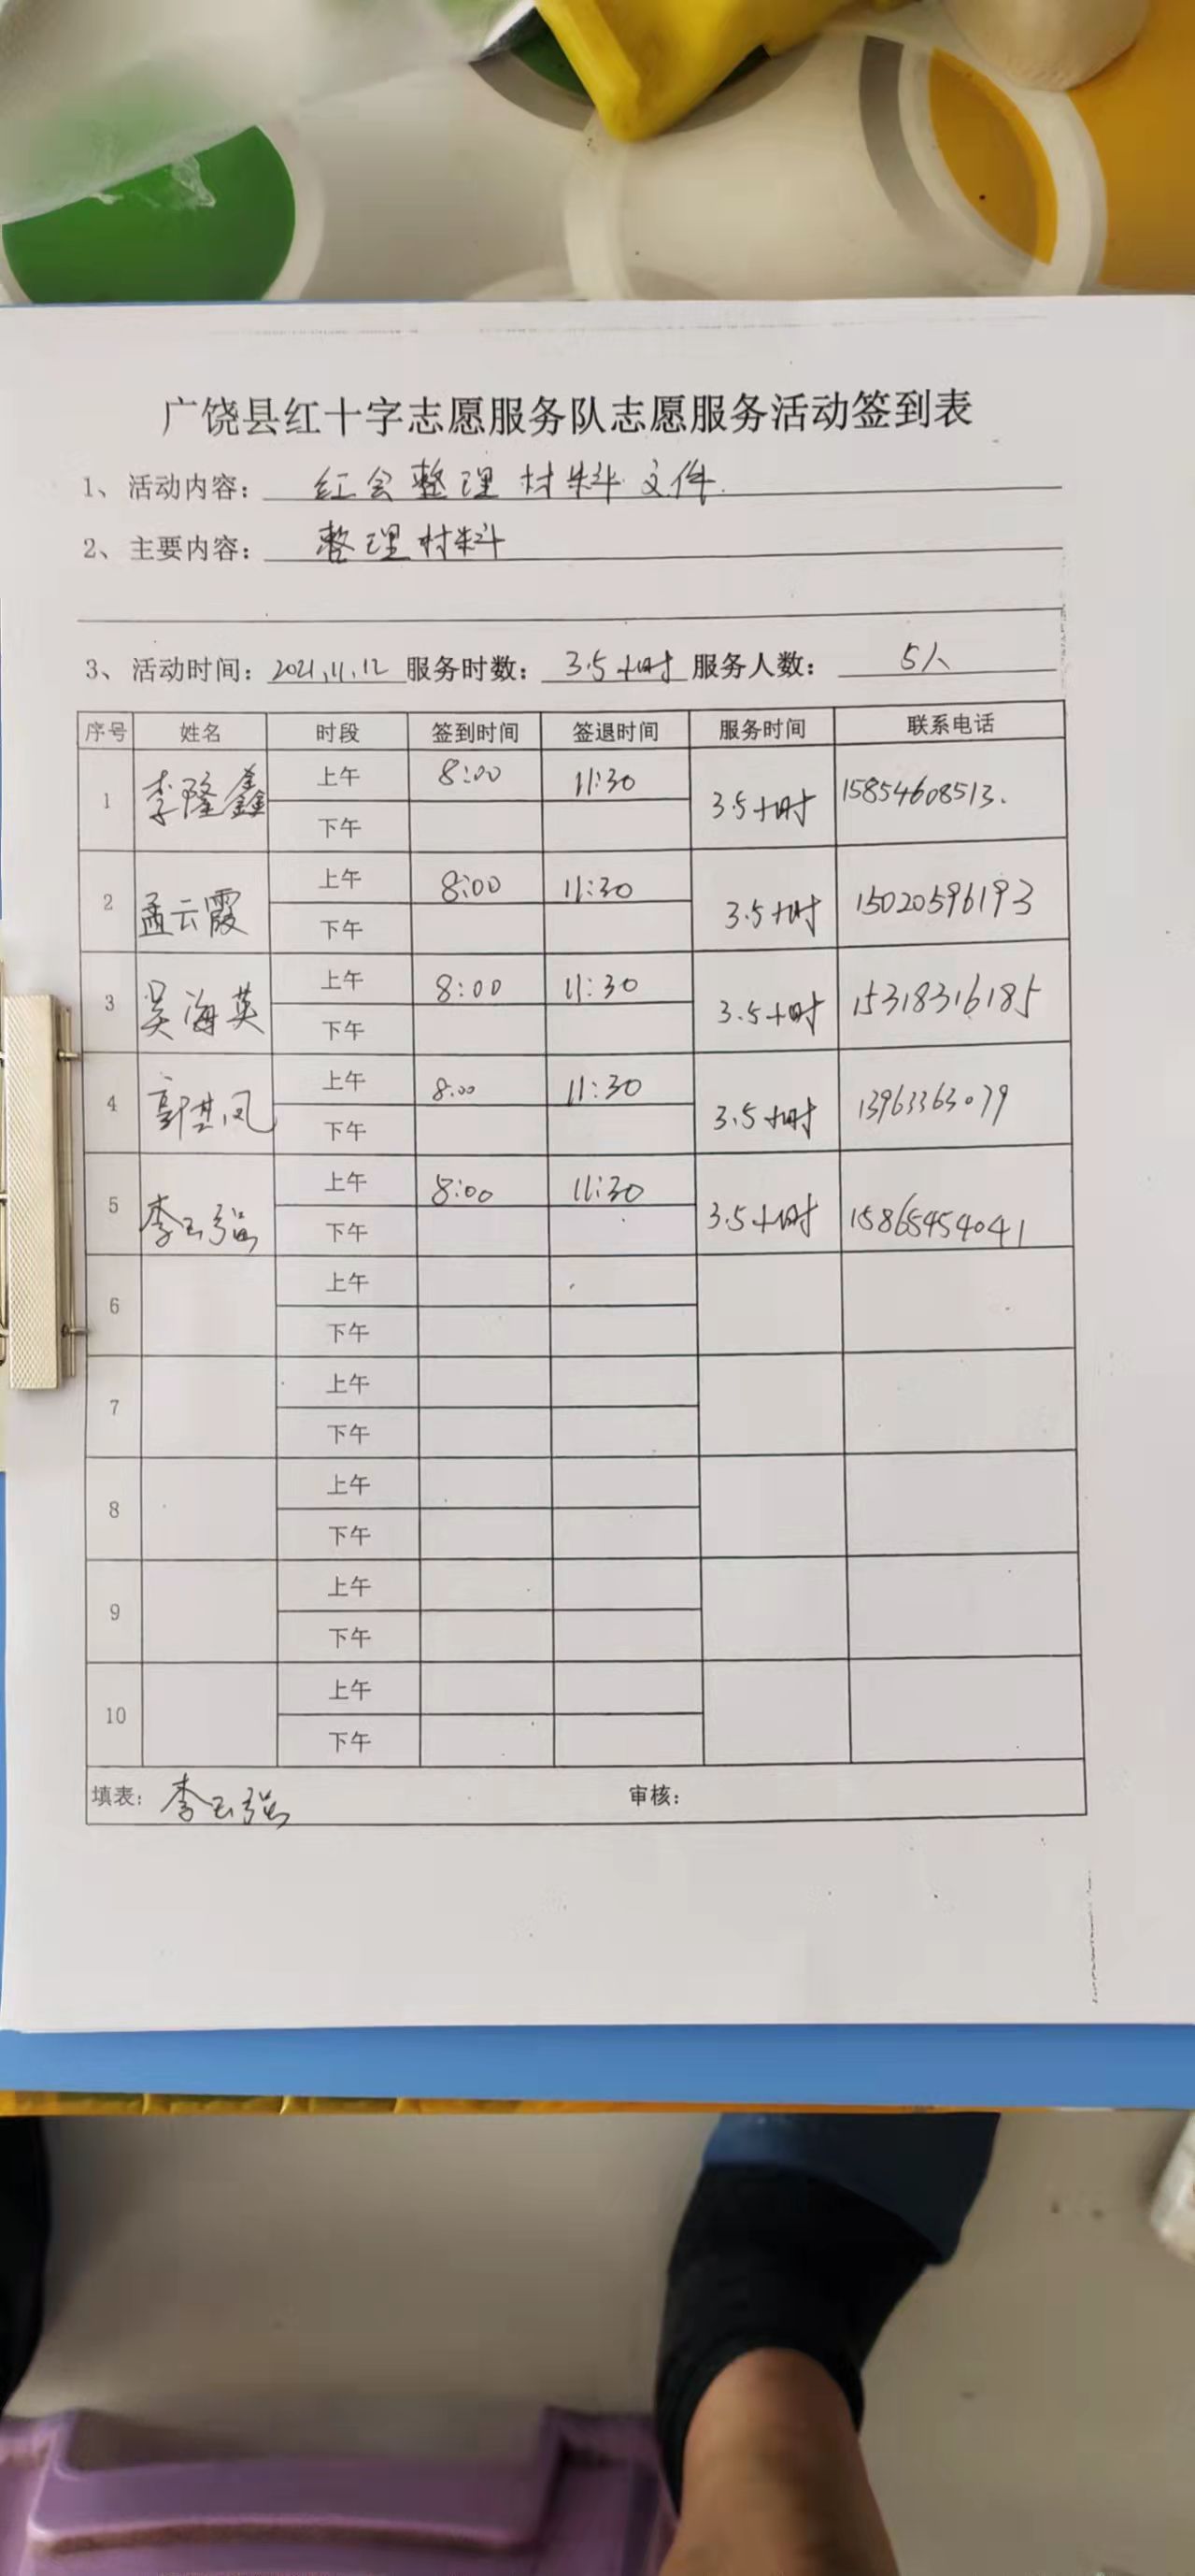 广饶县红十字志愿服务队志愿服务活动签到表
1、活动内容：红会整理材料文件
2、主要内容：整理材料
3、活动时间：2021.11.12 服务时数：3.5小时 服务人数：5人
序号 姓名 时段 签到时间 签退时间 服务时间 联系电话
1 李隆鑫 上午 8:00 11:30 3.5小时 15854608513.
下午
2 孟云霞 上午 8:00 11:30 3.5小时 15020596193
下午
3 吴海英 上午 8:00 11:30 3.5小时 15318316185
下午
4 上午 8:00 11:30 3.5小时 13963363079
下午
5 李玉强 上午 8:00 11:30 3.5小时 15865454041
下午
6 上午
下午
7 上午
下午
8 上午
下午
9 上午
下午
10 上午
下午
填表：李玉强 审核：